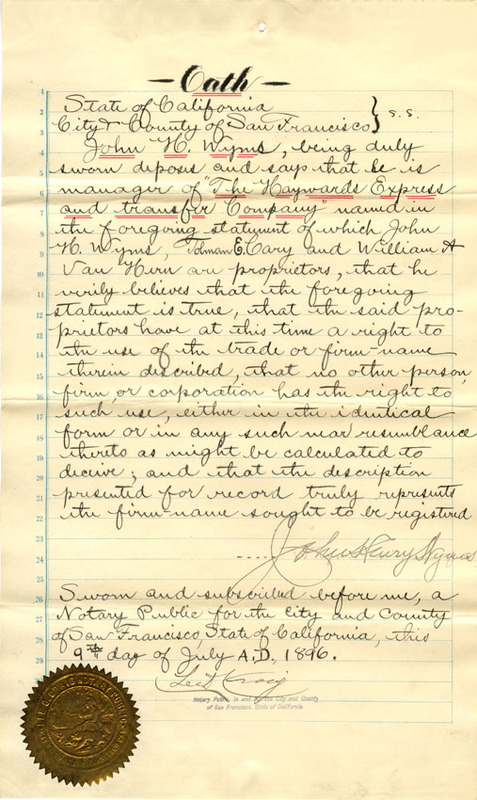 — Oath —
State of California
City & County of San Francisco } S.S.
John H. Wyms, being duly
sworn deposes and says that he is
manager of "The Haywards Express
and transfer Company" named in
the foregoing statement of which John
H. Wyms, Tolman E. Cary and William A
Van Horn are proprietors, that he
verily believes that the foregoing
statement is true, that the said pro-
prietors have at this time a right to
the use of the trade or firm-name
therein described, that no other person,
firm or corporation has the right to
such use, either in the identical
form or in any such near resemblance
thereto as might be calculated to
deceive; and that the description
presented for record truly represents
the firm-name sought to be registered
.... John Henry Wyms
Sworn and subscribed before me, a
Notary Public for the City and County
of San Francisco, State of California, this
9th day of July A.D., 1896.
Craig
Notary Public, in and for the City and County
of San Francisco, State of California